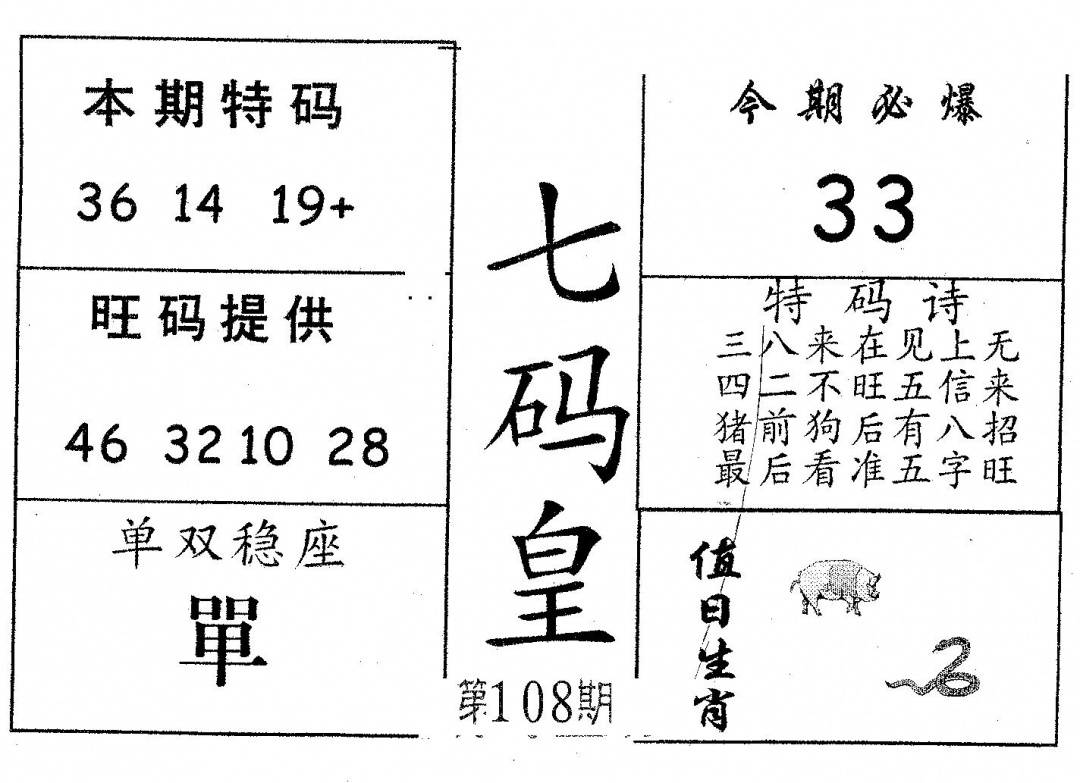 本期特码
36 14 19+
旺码提供
46 32 10 28
单双稳座
單
七码皇
第108期
今期必爆
33
特码诗
三八来在见上无
四二不旺五信来
猪前狗后有八招
最后看准五字旺
值日生肖